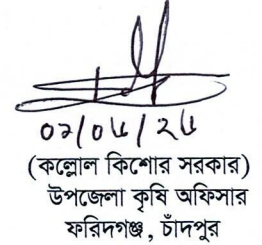 ০২/০৬/২৬
(কল্লোল কিশোর সরকার)
উপজেলা কৃষি অফিসার
ফরিদগঞ্জ, চাঁদপুর